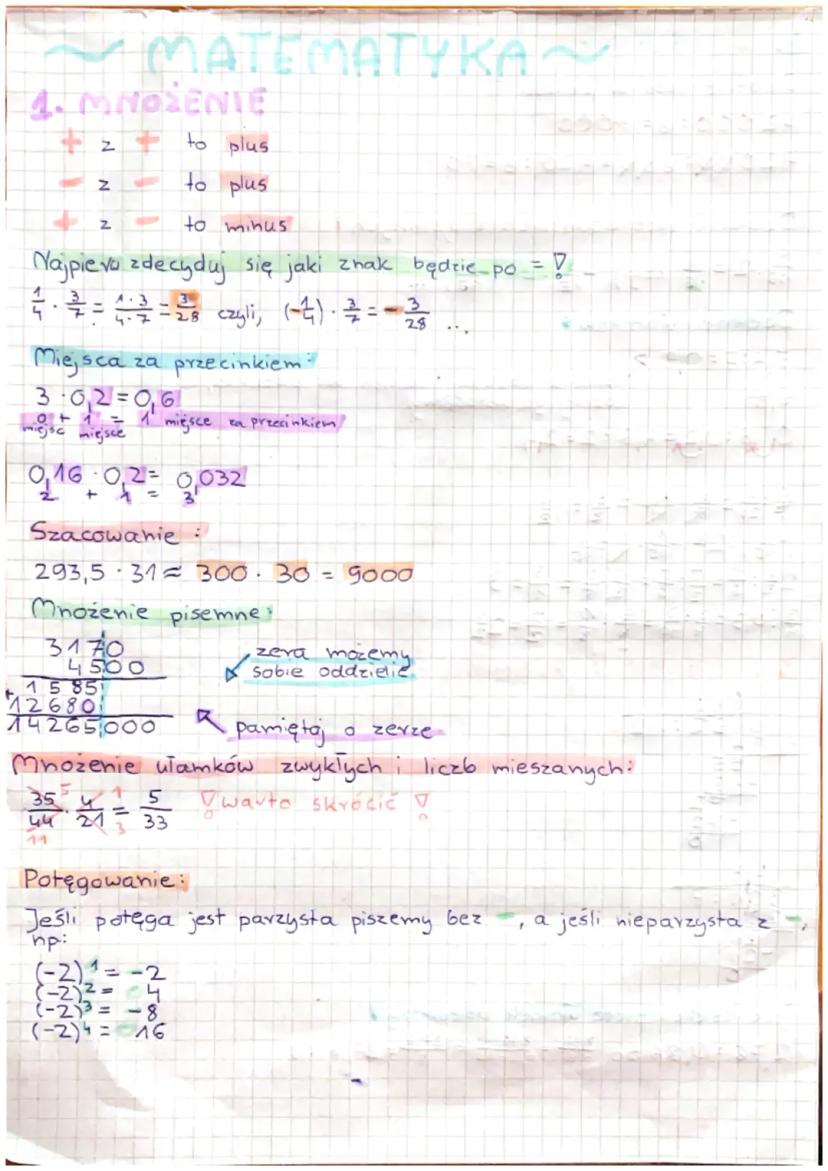 ~ MATEMATYKA ~
1. MNOŻENIE
+ z + to plus
- z - to plus
+ z - to minus
Najpierw zdecyduj się jaki znak będzie po = !
1/4 · 3/7 = 1·3/4·7 = 3/28 czyli, (-1/4) · 3/7 = -3/28 ...
Miejsca za przecinkiem:
3 · 0,2 = 0,6
0 + 1 = 1 miejsce za przecinkiem
miejsc miejsce
0,16 · 0,2 = 0,032
2 + 1 = 3
Szacowanie :
293,5 · 31 ≈ 300 · 30 = 9000
Mnożenie pisemne:
3170
4500
1585
+12680
14265000
zera możemy
sobie oddzielić
pamiętaj o zerze
Mnożenie ułamków zwykłych i liczb mieszanych:
35/44 · 4/21 = 5/33 ! warto skrócić !
5 1
11 3
Potęgowanie:
Jeśli potęga jest parzysta piszemy bez -, a jeśli nieparzysta z -,
np:
(-2)¹ = -2
(-2)² = 4
(-2)³ = -8
(-2)⁴ = 16